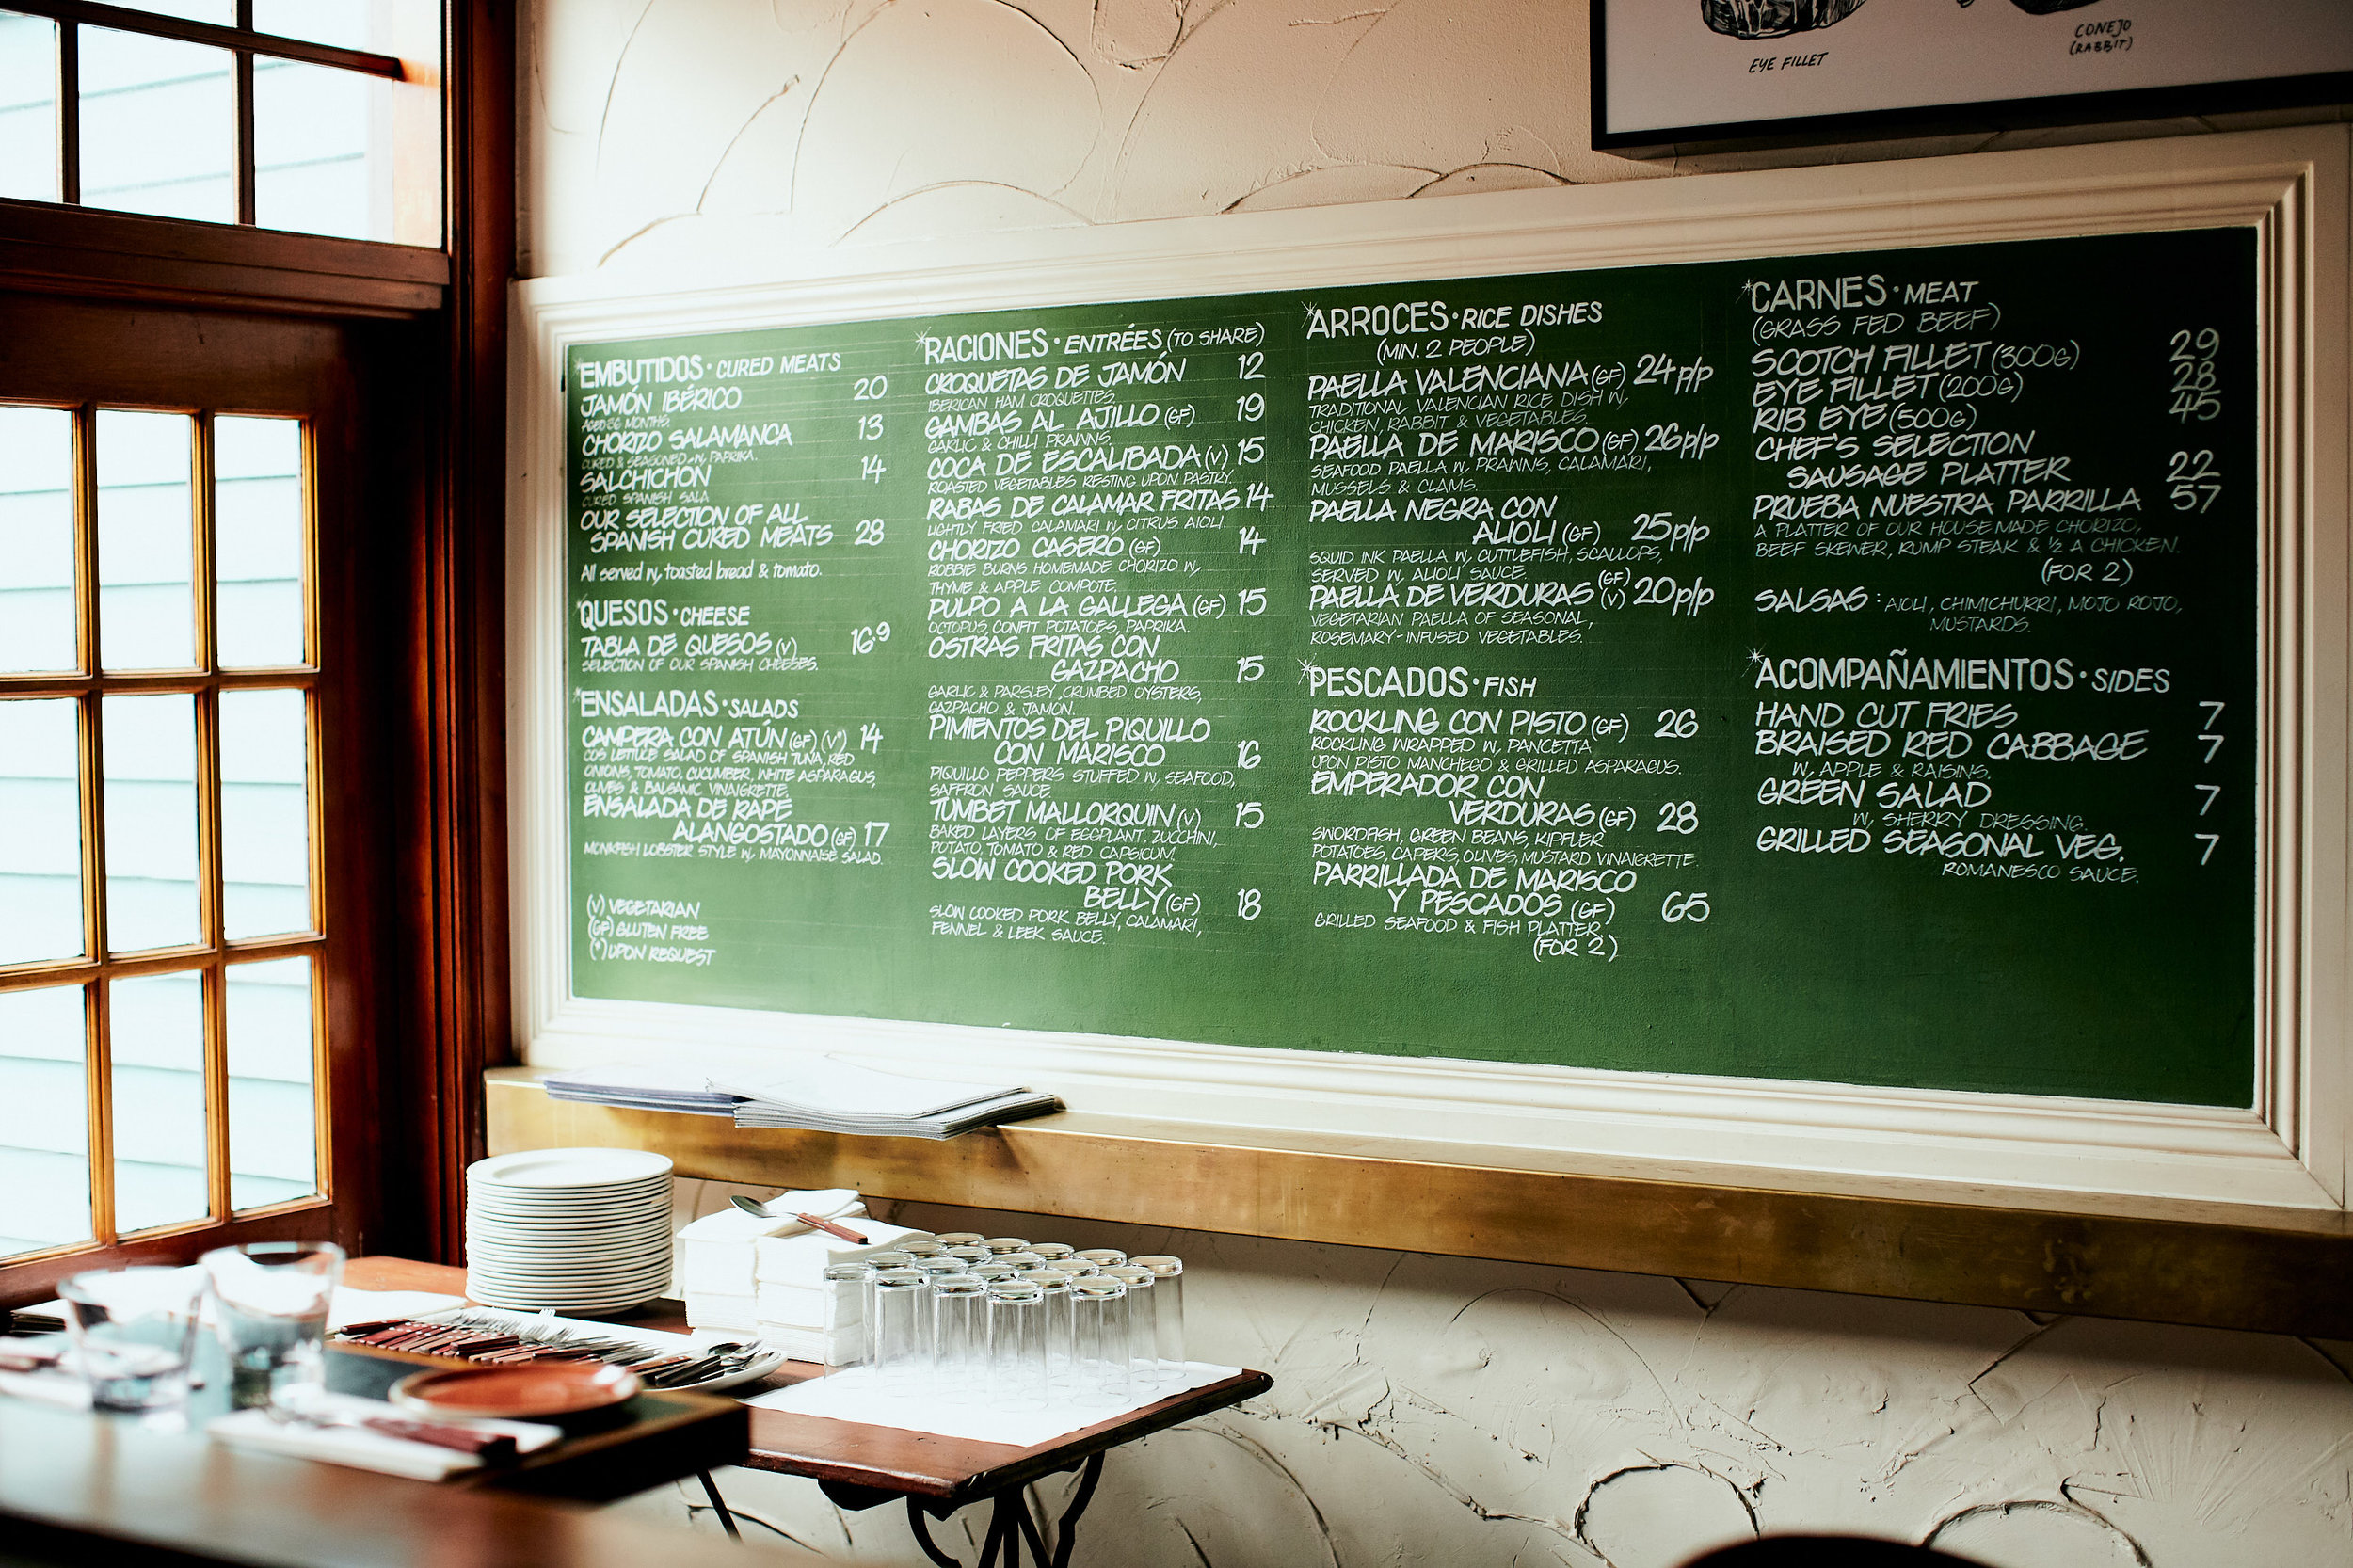 EYE FILLET
CONEJO
(RABBIT)
EMBUTIDOS · CURED MEATS
JAMÓN IBÉRICO 20
AGED 36 MONTHS.
CHORIZO SALAMANCA 13
CURED & SEASONED W/ PAPRIKA.
SALCHICHON 14
CURED SPANISH SALA
OUR SELECTION OF ALL
SPANISH CURED MEATS 28
All served w/ toasted bread & tomato.
QUESOS · CHEESE
TABLA DE QUESOS (V) 16.9
SELECTION OF OUR SPANISH CHEESES.
ENSALADAS · SALADS
CAMPERA CON ATÚN (GF) (V*) 14
COS LETTUCE SALAD OF SPANISH TUNA, RED
ONIONS, TOMATO, CUCUMBER, WHITE ASPARAGUS,
OLIVES & BALSAMIC VINAIGRETTE.
ENSALADA DE RAPE
ALANGOSTADO (GF) 17
MONKFISH LOBSTER STYLE W/ MAYONNAISE SALAD.
(V) VEGETARIAN
(GF) GLUTEN FREE
(*) UPON REQUEST
RACIONES · ENTRÉES (TO SHARE)
CROQUETAS DE JAMÓN 12
IBERICAN HAM CROQUETTES.
GAMBAS AL AJILLO (GF) 19
GARLIC & CHILLI PRAWNS.
COCA DE ESCALIBADA (V) 15
ROASTED VEGETABLES RESTING UPON PASTRY.
RABAS DE CALAMAR FRITAS 14
LIGHTLY FRIED CALAMARI W/ CITRUS AIOLI.
CHORIZO CASERO (GF) 14
ROBBIE BURNS HOMEMADE CHORIZO W/
THYME & APPLE COMPOTE.
PULPO A LA GALLEGA (GF) 15
OCTOPUS, CONFIT POTATOES, PAPRIKA.
OSTRAS FRITAS CON
GAZPACHO 15
GARLIC & PARSLEY CRUMBED OYSTERS,
GAZPACHO & JAMÓN.
PIMIENTOS DEL PIQUILLO
CON MARISCO 16
PIQUILLO PEPPERS STUFFED W/ SEAFOOD,
SAFFRON SAUCE.
TUMBET MALLORQUIN (V) 15
BAKED LAYERS OF EGGPLANT, ZUCCHINI,
POTATO, TOMATO & RED CAPSICUM.
SLOW COOKED PORK
BELLY (GF) 18
SLOW COOKED PORK BELLY, CALAMARI,
FENNEL & LEEK SAUCE.
ARROCES · RICE DISHES
(MIN. 2 PEOPLE)
PAELLA VALENCIANA (GF) 24 p/p
TRADITIONAL VALENCIAN RICE DISH W/
CHICKEN, RABBIT & VEGETABLES.
PAELLA DE MARISCO (GF) 26 p/p
SEAFOOD PAELLA W/ PRAWNS, CALAMARI,
MUSSELS & CLAMS.
PAELLA NEGRA CON
ALIOLI (GF) 25 p/p
SQUID INK PAELLA W/ CUTTLEFISH, SCALLOPS,
SERVED W/ ALIOLI SAUCE.
PAELLA DE VERDURAS (GF) (V) 20 p/p
VEGETARIAN PAELLA OF SEASONAL,
ROSEMARY-INFUSED VEGETABLES.
PESCADOS · FISH
ROCKLING CON PISTO (GF) 26
ROCKLING WRAPPED W/ PANCETTA
UPON PISTO MANCHEGO & GRILLED ASPARAGUS.
EMPERADOR CON
VERDURAS (GF) 28
SWORDFISH, GREEN BEANS, KIPFLER
POTATOES, CAPERS, OLIVES, MUSTARD VINAIGRETTE.
PARRILLADA DE MARISCO
Y PESCADOS (GF) 65
GRILLED SEAFOOD & FISH PLATTER.
(FOR 2)
CARNES · MEAT
(GRASS FED BEEF)
SCOTCH FILLET (300G) 29
EYE FILLET (200G) 28
RIB EYE (500G) 45
CHEF'S SELECTION
SAUSAGE PLATTER 22
PRUEBA NUESTRA PARRILLA 57
A PLATTER OF OUR HOUSEMADE CHORIZO,
BEEF SKEWER, RUMP STEAK & ½ A CHICKEN.
(FOR 2)
SALSAS : AIOLI, CHIMICHURRI, MOJO ROJO,
MUSTARDS.
ACOMPAÑAMIENTOS · SIDES
HAND CUT FRIES 7
BRAISED RED CABBAGE 7
W/ APPLE & RAISINS.
GREEN SALAD 7
W/ SHERRY DRESSING.
GRILLED SEASONAL VEG. 7
ROMANESCO SAUCE.